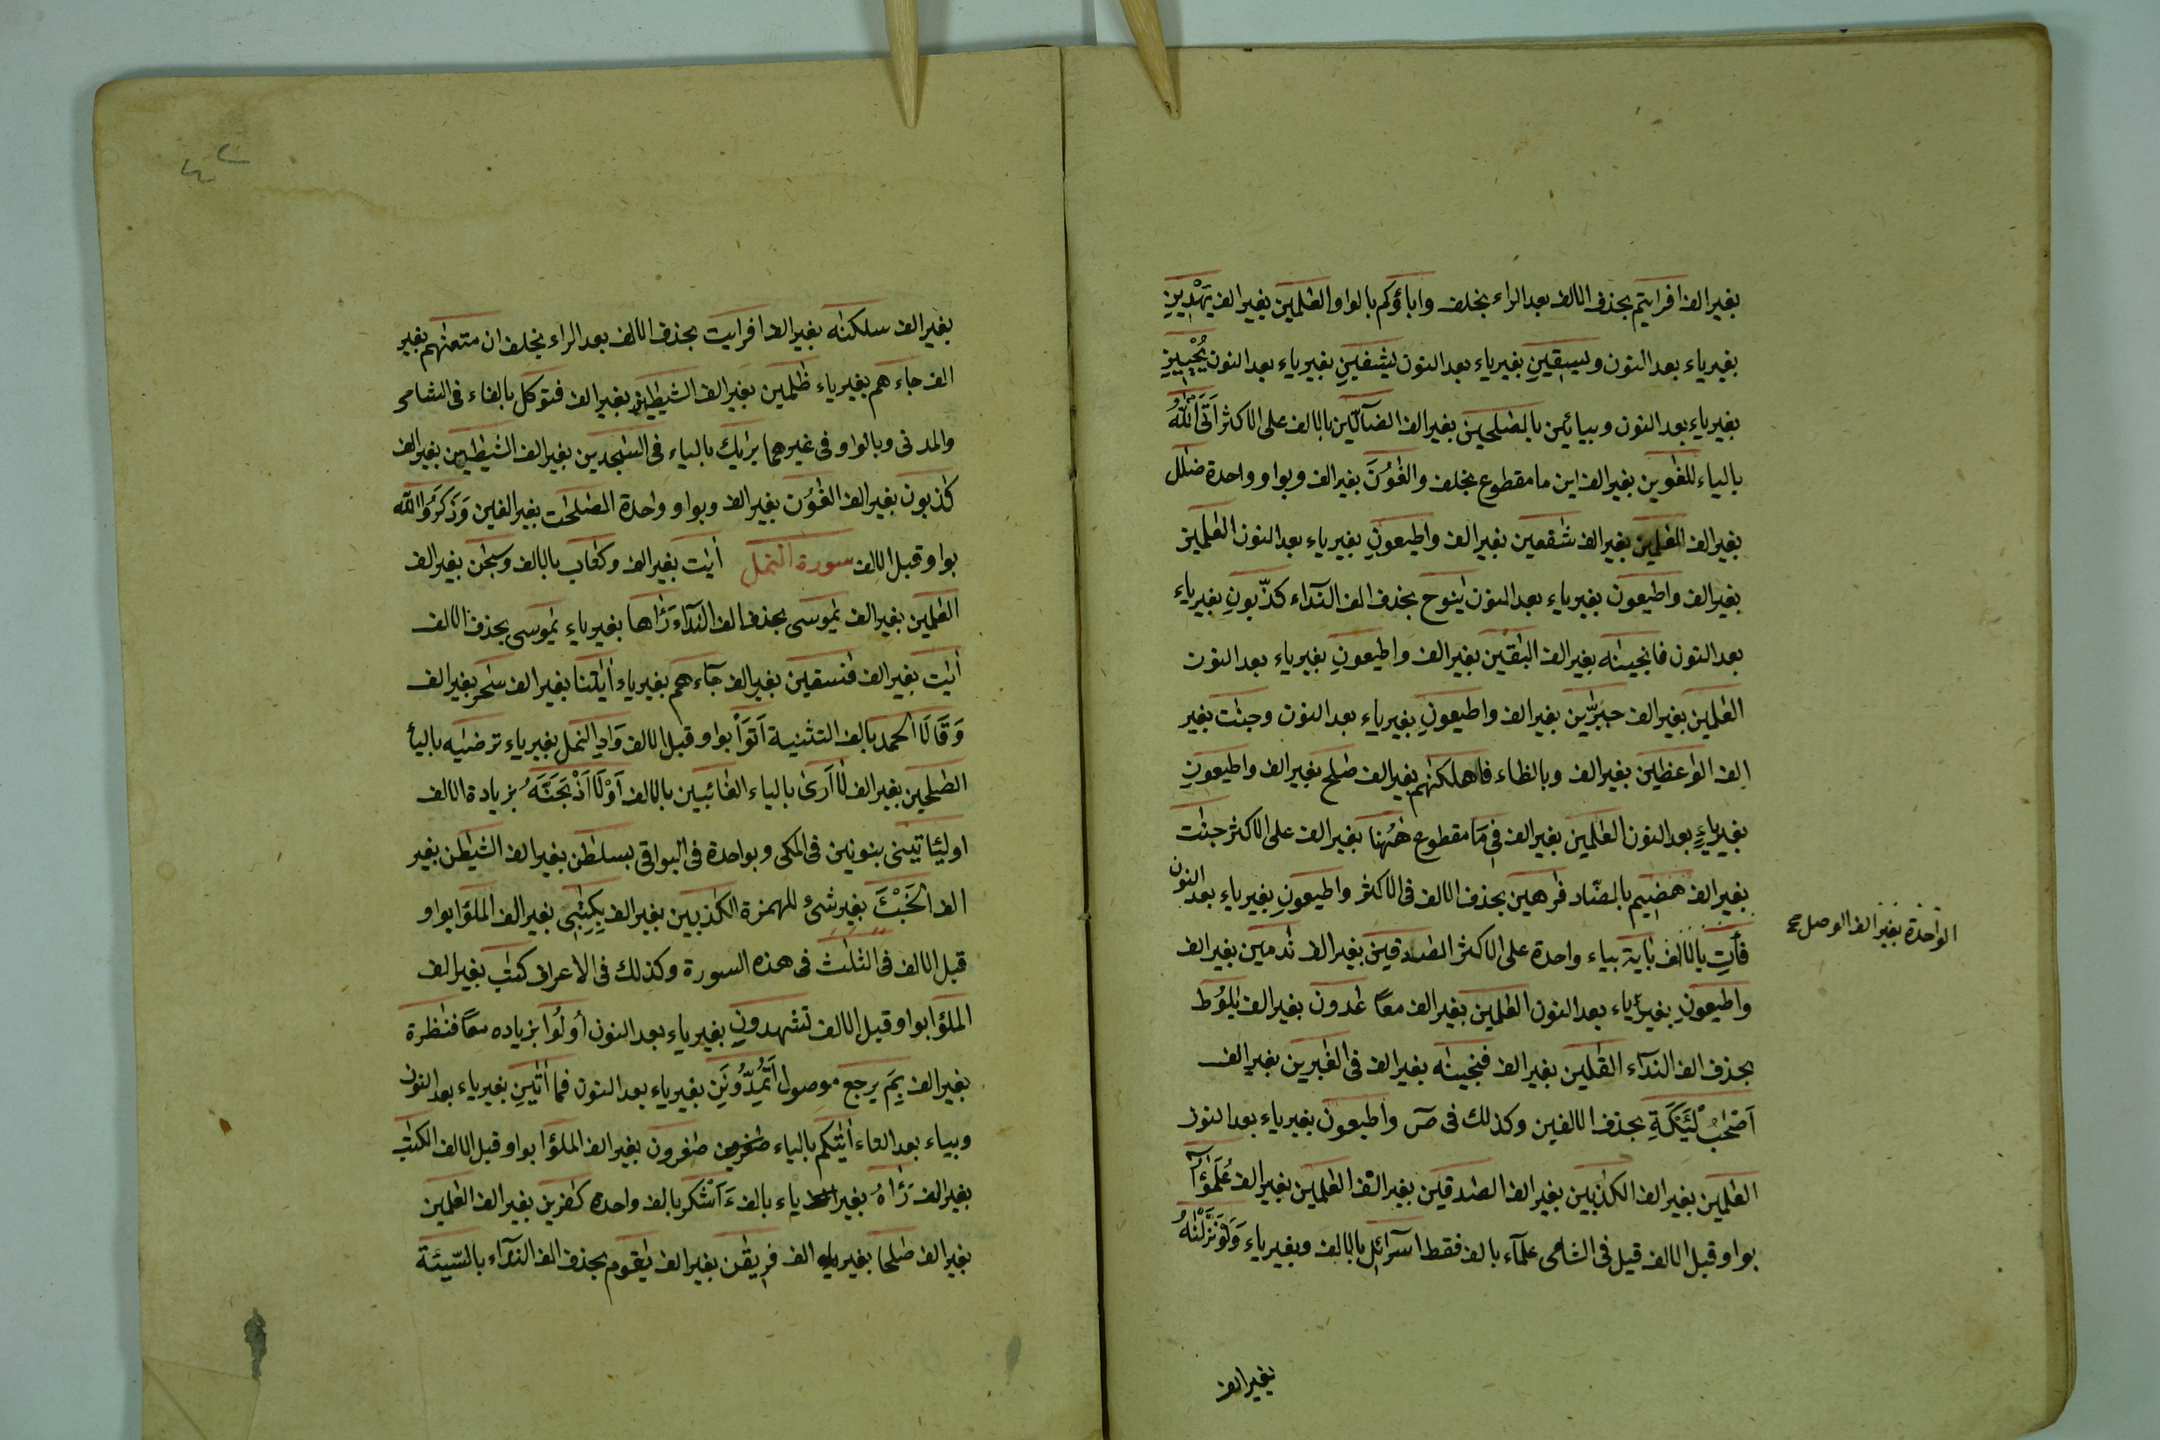 بغير الف افرايتم بحذف الالف بعد الراء بخلف واباؤكم بالواو العٰلمين بغير الف يَهْدِينِ
بغير ياء بعد النون ويسقينِ بغير ياء بعد النون يشفينِ بغير ياء بعد النون يُحْيِينِ
بغير ياء بعد النون وبيائين بالصٰلحين بغير الف الضآلّين بالالف على الاكثر اَتَى اللّٰهَ
بالياء للغٰوين بغير الف اين ما مقطوع بخلف والغٰوٗنَ بغير الف وبواو واحدة ضلٰل
بغير الف العٰلمين بغير الف شٰفعين بغير الف واطيعونِ بغير ياء بعد النون العٰلمين
بغير الف واطيعون بغير ياء بعد النون يٰنوح بحذف الف الندآء كذّبونِ بغير ياء
بعد النون فانجينٰه بغير الف البٰقين بغير الف واطيعونِ بغير ياء بعد النون
العٰلمين بغير الف جبّٰرين بغير الف واطيعونِ بغير ياء بعد النون وجنّٰت بغير
الف الوٰعظين بغير الف وبالظاء فاهلكنٰهم بغير الف صٰلح بغير الف واطيعونِ
بغير ياءٍ بعد النون العٰلمين بغير الف فِى مَا مقطوع هٰهُنا بغير الف على الاكثر جنّٰت
بغير الف هضيم بالضّاد فرهين بحذف الالف فى الاكثر واطيعونِ بغير ياء بعد النون
فأتِ بالالف باٰية بياء واحدة على الاكثر الصٰدقين بغير الف نٰدمين بغير الف
الواحدة بغير الف الوصل صح
واطيعونِ بغير ياء بعد النون العٰلمين بغير الف معًا عٰدون بغير الف يٰلُوط
بحذف الف الندآء القٰلين بغير الف فنجينٰه بغير الف فى الغٰبرين بغير الف
اَصْحٰبُ لْئَيْكَةِ بحذف الالفين وكذلك فى صٓ واطيعون بغير ياء بعد النون
العٰلمين بغير الف الكٰذبين بغير الف الصٰدقين بغير الف العٰلمين بغير الف عُلَمٰٓؤُا
بواو قبل الالف قيل فى الشامى علمآء بالف فقط اسرآئل بالالف وبغير ياء وَلَوْ نَزَّلْنٰهُ
بغير الف
بغير الف سلكنٰه بغير الف افرايت بحذف الالف بعد الراء بخلف ان متعنٰهم بغير
الف جاءهم بغير ياء ظٰلمين بغير الف الشيٰطين بغير الف فتوكل بالفاء فى الشامى
والمدنى وبالواو فى غيرهما يرٰيك بالياء فى السٰجدين بغير الف الشيٰطين بغير الف
كٰذبون بغير الف الغٰوٗن بغير الف وبواو واحدة الصٰلحٰت بغير الفين وَذَكَرُوا اللّٰه
بواو قبل الالف سورة النمل اٰيٰت بغير الف وكتاب بالالف وسبحٰن بغير الف
العٰلمين بغير الف يٰموسى بحذف الف الندآء رَاٰها بغير ياءٍ يٰموسى بحذف الالف
اٰيٰت بغير الف فٰسقين بغير الف جآءهم بغير ياء اٰيٰتنا بغير الف سٰحر بغير الف
وَقَالَا الحمد بالف التثنية اَتَوْا بواو قبل الالف وَادِ النمل بغير ياء ترضٰيه بالياء
الصٰلحين بغير الف لَا اَرٰى بالياء الغائبين بالالف اَوْ لَا اَذْبَحَنَّهٗ بزيادة الالف
اوليأتيننى بنونين فى المكى وبواحدة فى البواقى بسلطٰن بغير الف الشيطٰن بغير
الف الخَبْءَ بغير شئ للهمزة الكٰذبين بغير الف بِكِتٰبِى بغير الف الملؤا بواو
قبل الالف فى الثلٰث فى هذه السورة وكذلك فى الاعراف كتٰب بغير الف
الملؤا بواو قبل الالف تشهدونِ بغير ياء بعد النون اُولُوا بزياده معًا فنٰظرة
بغير الف بِمَ يرجع موصول اَتُمِدُّونَنِ بغير ياء بعد النون فما اٰتٰينِ بغير ياء بعد النون
وبياء بعد التاء اٰتٰيكم بالياء صٰغرون بغير الف الملؤا بواو قبل الالف الكتٰب
بغير الف رَاٰهُ بغير ياء بالف ءَاَشْكر بالف واحدة كٰفرين بغير الف العٰلمين
بغير الف صٰلحا بغير الف فريقٰن بغير الف يٰقوم بحذف الف الندآء بالسّيئة